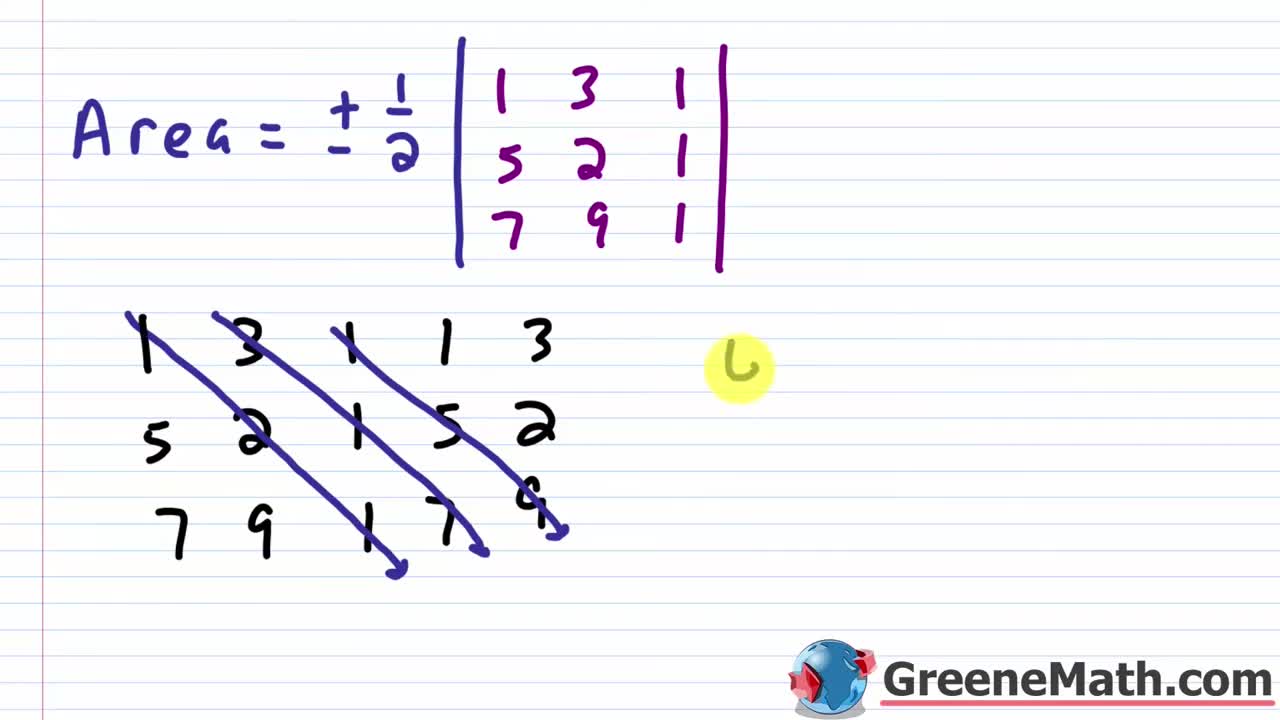 Area = ± 1/2 | 1 3 1 |
5 2 1
7 9 1
1 3 1 1 3
5 2 1 5 2
7 9 1 7 9
GreeneMath.com